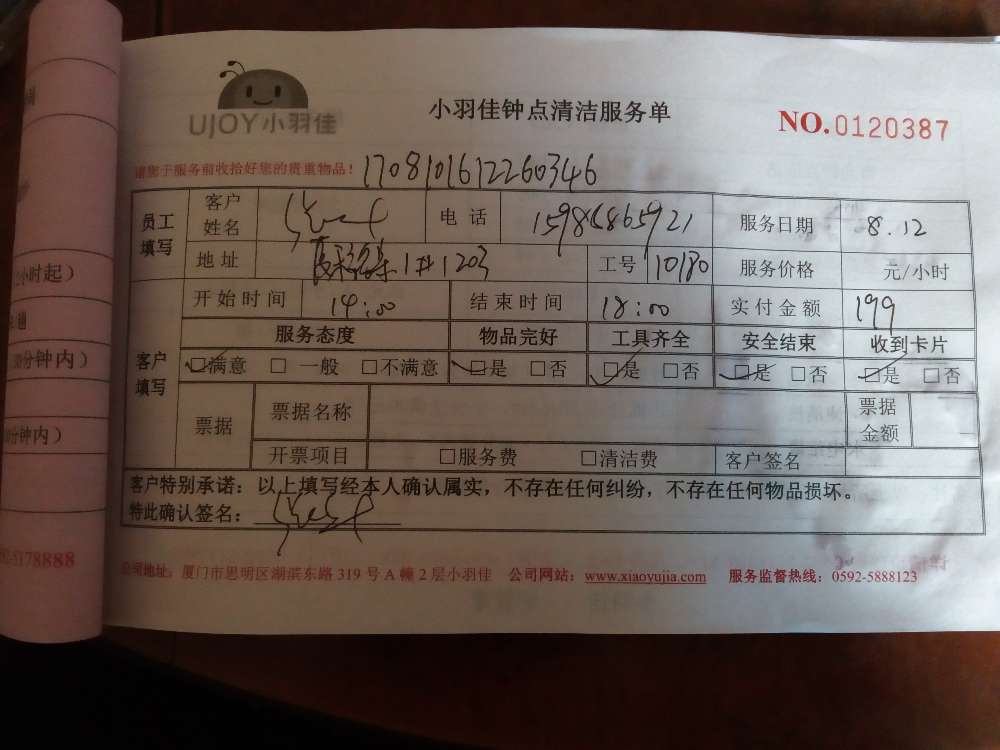 UJOY小羽佳
小羽佳钟点清洁服务单
NO.0120387
请您于服务前收拾好您的贵重物品！ 1708101612260346
员工填写 客户姓名 电话 服务日期 8.12
地址 1#1203 工号 10180 服务价格 元/小时
开始时间 14:00 结束时间 18:00 实付金额 199
客户填写 服务态度 物品完好 工具齐全 安全结束 收到卡片
☑满意 □一般 □不满意 ☑是 □否 ☑是 □否 ☑是 □否 ☑是 □否
票据 票据名称 票据金额
开票项目 □服务费 □清洁费 客户签名
客户特别承诺：以上填写经本人确认属实，不存在任何纠纷，不存在任何物品损坏。
特此确认签名：
公司地址：厦门市思明区湖滨东路319号A幢2层小羽佳 公司网站：www.xiaoyujia.com 服务监督热线：0592-5888123
小时起）
分钟内）
分钟内）
5178888